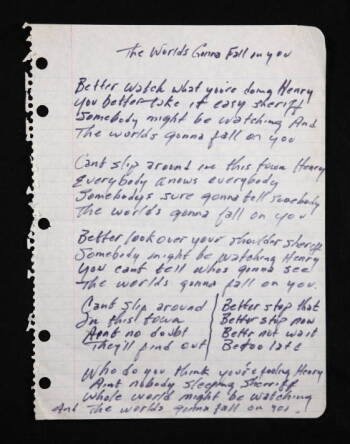 The Worlds Gonna Fall on you
Better watch what you're doing Henry
You better take it easy sheriff
Somebody might be watching And
The worlds gonna fall on you
Cant slip around in this town Henry
Everybody knows everybody
Somebodys sure gonna tell somebody
The worlds gonna fall on you
Better look over your shoulder sheriff
Somebody might be watching Henry
You cant tell whos gonna see
The worlds gonna fall on you.
Cant slip around
In this town
Aint no doubt
They'll find out
Better stop that
Better stop now
Better not wait
Be too late
Who do you think you're fooling Henry
Aint nobody sleeping Sherriff
Whole world might be watching
And The worlds gonna fall on you.